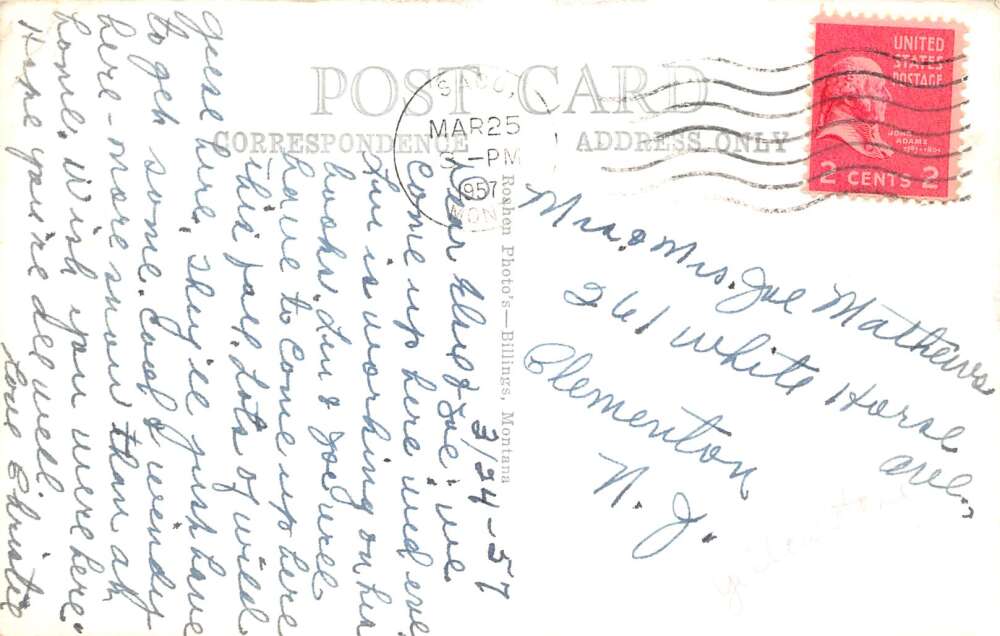 POST CARD
CORRESPONDENCE
ADDRESS ONLY
SACO,
MAR 25
PM
1957
MON
UNITED
STATES
POSTAGE
JOHN
ADAMS
2 CENTS 2
Roahen Photo's—Billings, Montana
3/24-57
Dear & Joe: We
come up here wed eve
is working on his
books. & Joe will
have to come up here
this fall. Lots of wild
geese here. They'll just have
to get some. Cool & windy
here - more snow than at
home. Wish you were here.
Hope you're all well.
Love
Mr. & Mrs. Joe Mathews
261 White Horse
ave.
Clementon
N. J.